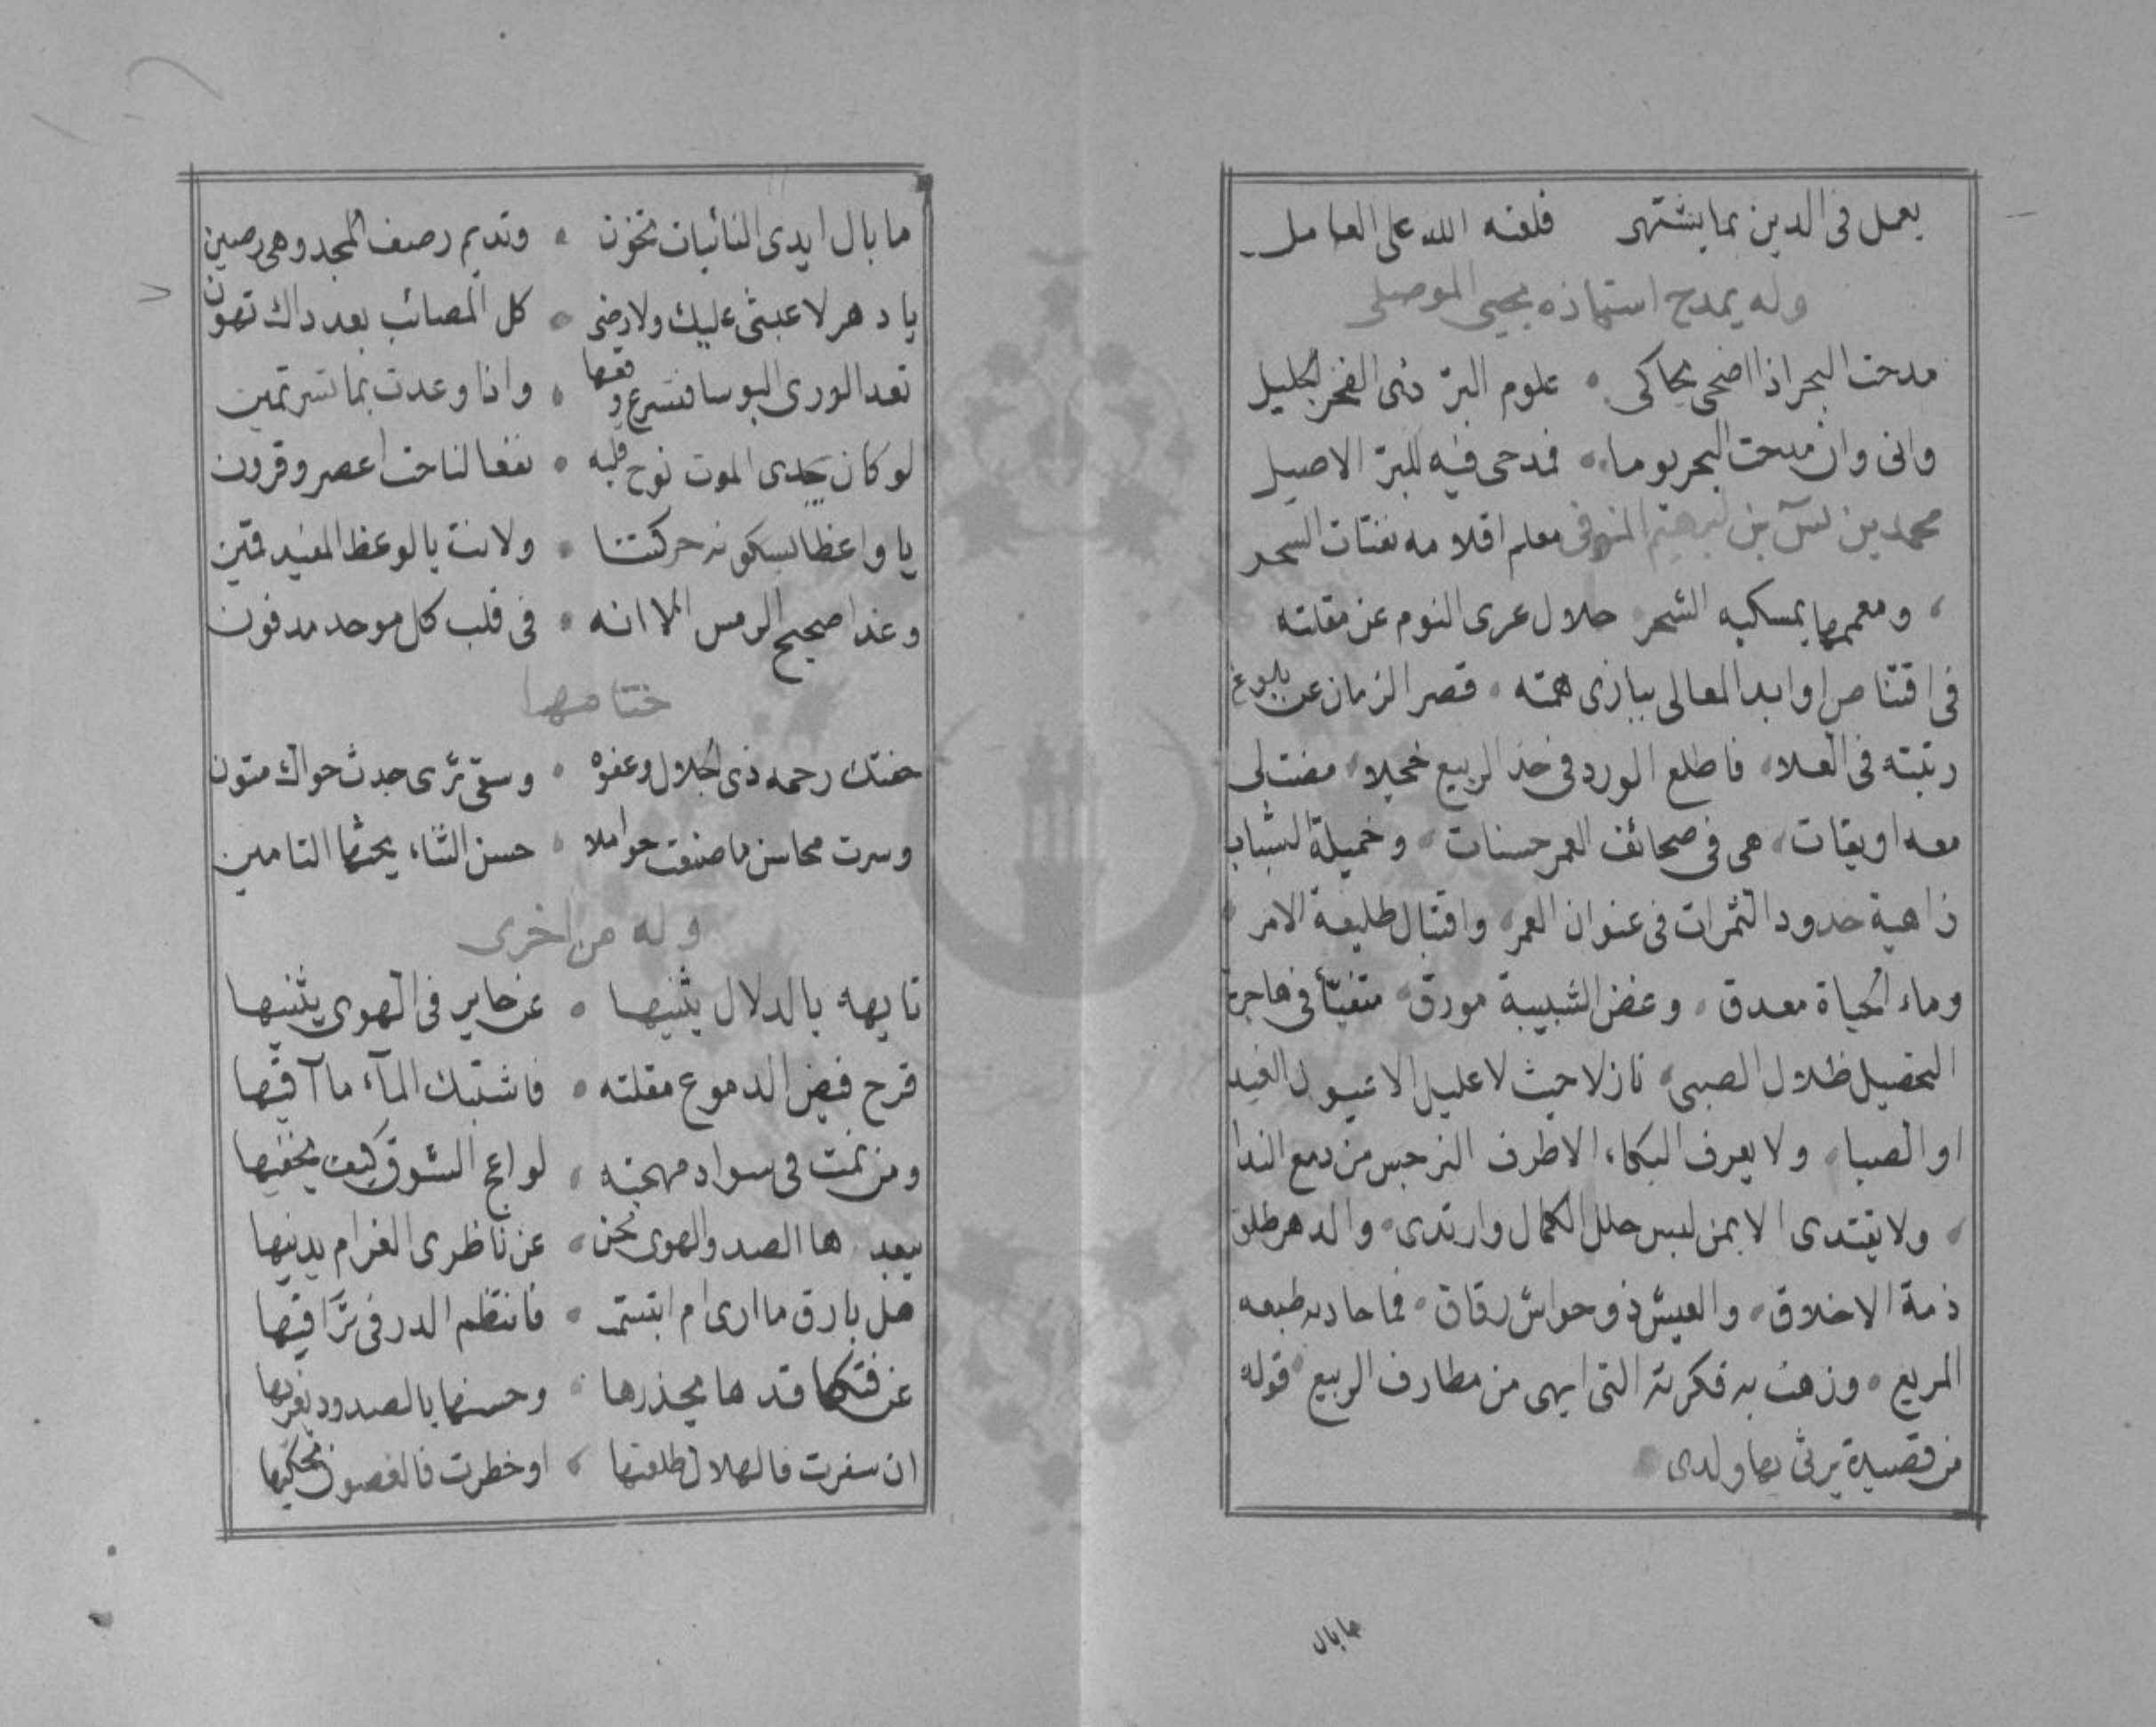 يعمل في الدين بما يشتهى فلعنه الله على العامل
وله يمدح استاذه يحيى الموصلى
مدحت البحر اذا اضحى يحاكى • علوم البرّ ذى الفخر الجليل
وانى وان مدحت البحر يوما • فمدحى فيه للبرّ الاصيل
محمد بن معلم اقلامه نفتات السحر
ومعممها بمسكيه الشحر حلال عرى النوم عن مقلته
فى اقتناص اوابد المعالى ببازى همته • قصر الزمان عن بلوغ
رتبته فى العلا • فاطلع الورد فى خد الربيع خجلا • مضت لى
معه اويقات • هى فى صحائف العمر حسنات • وخميلة الشباب
زاهية خدود الثمرات فى عنوان العمر • واقتبال طليعة الامر •
وماء الحياة معدق • وغض الشبيبة مورق • متفيّأ فى هاجرة
التحصيل ظلال الصبى • نازلا حيث لا عليل الا عيون الغيد
او الصبا • ولا يعرف البكاء الا طرف النرجس من دمع الندا
• ولا يقتدى الا بمن لبس حلل الكمال وارتدى • والدهر طلق
ذمة الاخلاق • والعيش ذو حواش رقاق • فما جاد به طبعه
المريع • وزهت به فكرته التى ابهى من مطارف الربيع • قوله
من قصيدة يرثى بها ولدى
ما بال
ما بال ايدى النائبات تخون • وتديم رصف المجد وهى رصين
يا دهر لا عبثى عليك ولا رضى • كل المصائب بعد ذاك تهون
تعد الورى البوسا فتسرع وقعها • واذا وعدت بما تسر تمين
لو كان يجدى الموت نوح قلبه • نفعا لناحت اعصر وقرون
يا واعظا بسكونه حركتنا • ولانت بالوعظ المفيد قمين
وغدا ضجيع الرمس الا انه • فى قلب كل موحد مدفون
ختامها
حفتك رحمه ذى الجلال وعفوه • وسقى ثرى جدث حواك متون
وسرت محاسن ما صنعت حواملا • حسن الثناء يحثها التامين
وله من اخرى
تايهه بالدلال يثنيها • عن حاير فى الهوى يثنيها
قرح فيض الدموع مقلته • فاشتبك المآء ماآقيها
ومن نمت فى سواد مهجته • لواعج الشوق كيف يخفيها
يبعدها الصد والهوى نحن • عن ناظرى الغرام يدنيها
هل بارق ما ارى ام ابتسمت • فانتظم الدر فى تراقيها
عن فتكها قدها يحذرها • وحسنها بالصدود يغريها
ان سفرت فالهلال طلعتها • او خطرت فالغصون تحكيها